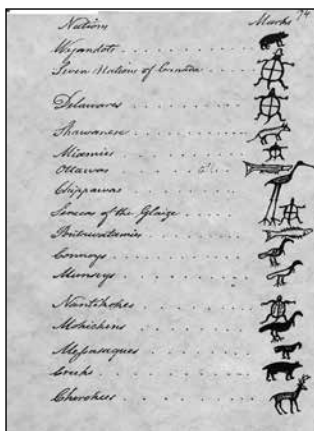 Nations Marks 74
Wyandots
Seven Nations of Canada
Delawares
Shawanese
Miamies
Ottawas
Chippawas
Senecas of the Glaize
Poutawatamies
Connoys
Munseys
Nantikokes
Mohickens
Messasagues
Creeks
Cherokees